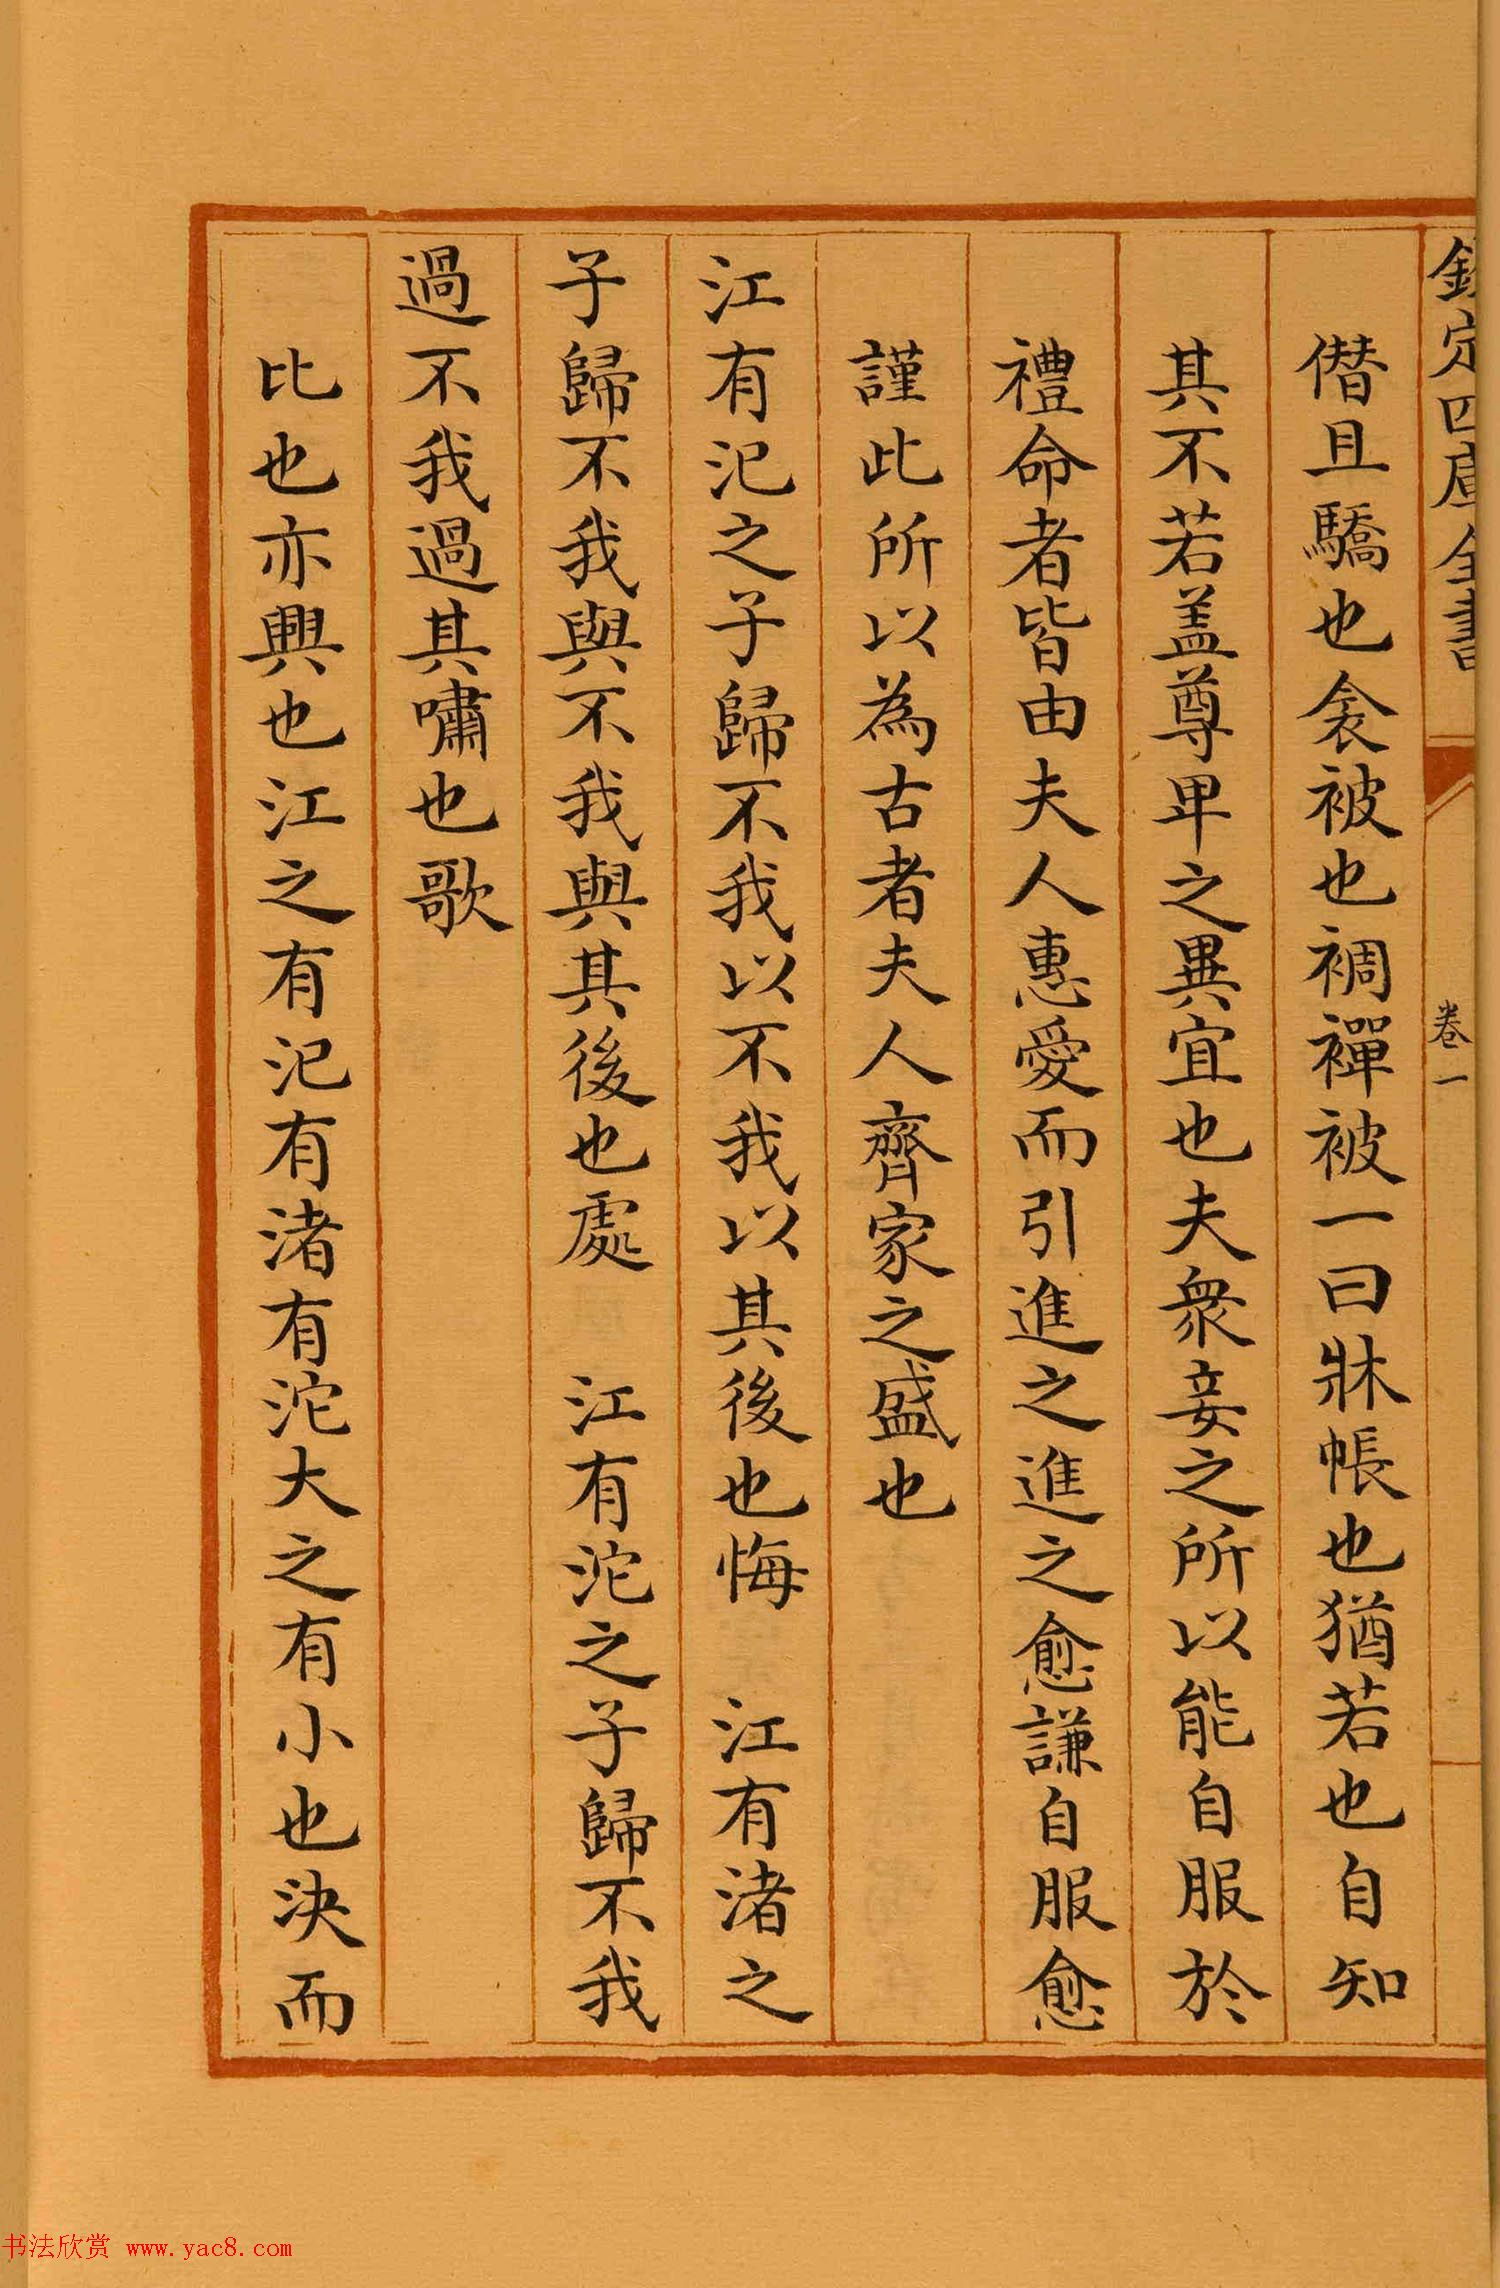 欽定四庫全書
卷一
僭且驕也衾被也裯襌被一曰牀帳也猶若也自知
其不若盖尊卑之異宜也夫衆妾之所以能自服於
禮命者皆由夫人惠愛而引進之進之愈謙自服愈
謹此所以為古者夫人齊家之盛也
江有汜之子歸不我以不我以其後也悔 江有渚之
子歸不我與不我與其後也處 江有沱之子歸不我
過不我過其嘯也歌
比也亦興也江之有汜有渚有沱大之有小也決而
书法欣赏 www.yac8.com